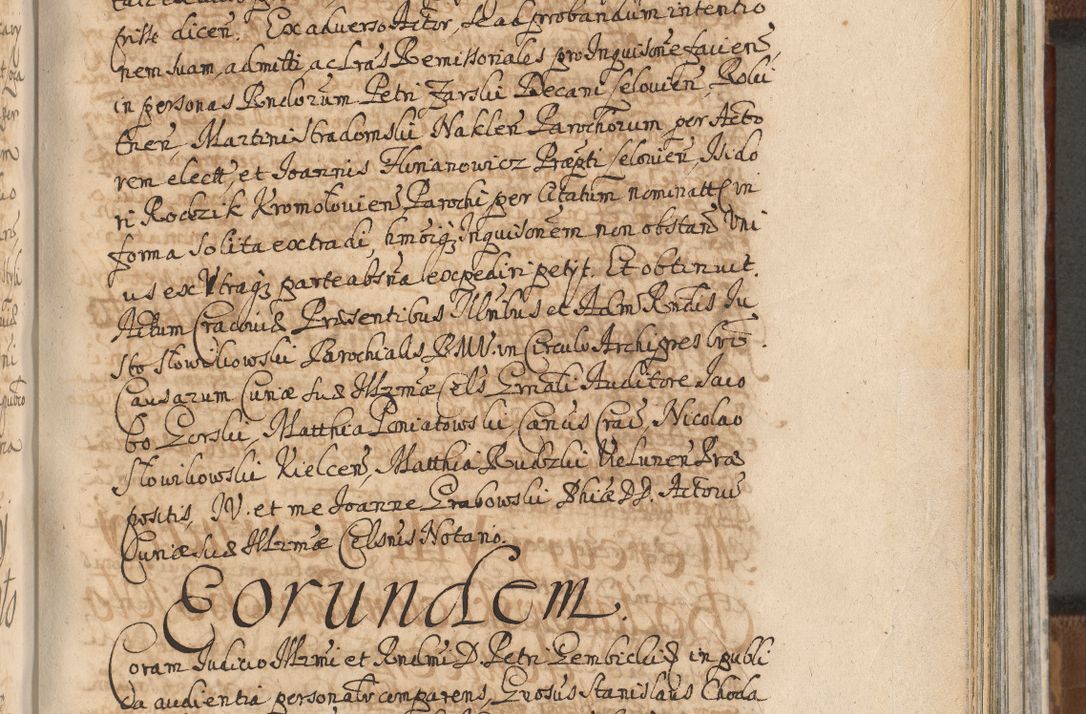 priste dicen. Ex adverso Actor, se ad probandum intentio
nem suam, admitti, ac Lras Remissoriales pro Inquisone faciens,
in personas Rndorum Petri Zarski Decani selovien, Robi
then, Martini Stradomski Naklen Parochorum per Acto
rem elect, et Joannis Flu­nianowicz Præpti selovien, Isido
ri Rodzik Kromolovien Parochi per Citatum nominatt in
forma solita extradi, hmoiq Inquisonem non obstan Uni
us ex Utraq parte absña expediri petyt. Et obtinuit.
Actum Cracoviæ Præsentibus Illribus et Adm Rndis Ju
sto Słowikowski Parochialis BMV. in Circulo Archipresbrō
Causarum Curiæ suæ Illrmæ Cels Grnali Auditore Jaco
bo Gorski, Matthia Poniatowski, Canus Crac, Nicolao
Słowikowski Kielcen, Matthia Rudzki Velunen Præ
positis, IV. et me Joanne Grabowski Phiæ DD. Actoru
Curiæ suæ Illrmæ Celsnis Notario.
Eorundem.
Coram Judicio Illrmi et Rndmi D. Petri Gembickii in publi
ca audientia personalr comparens, Grosus Stanislaus Choda